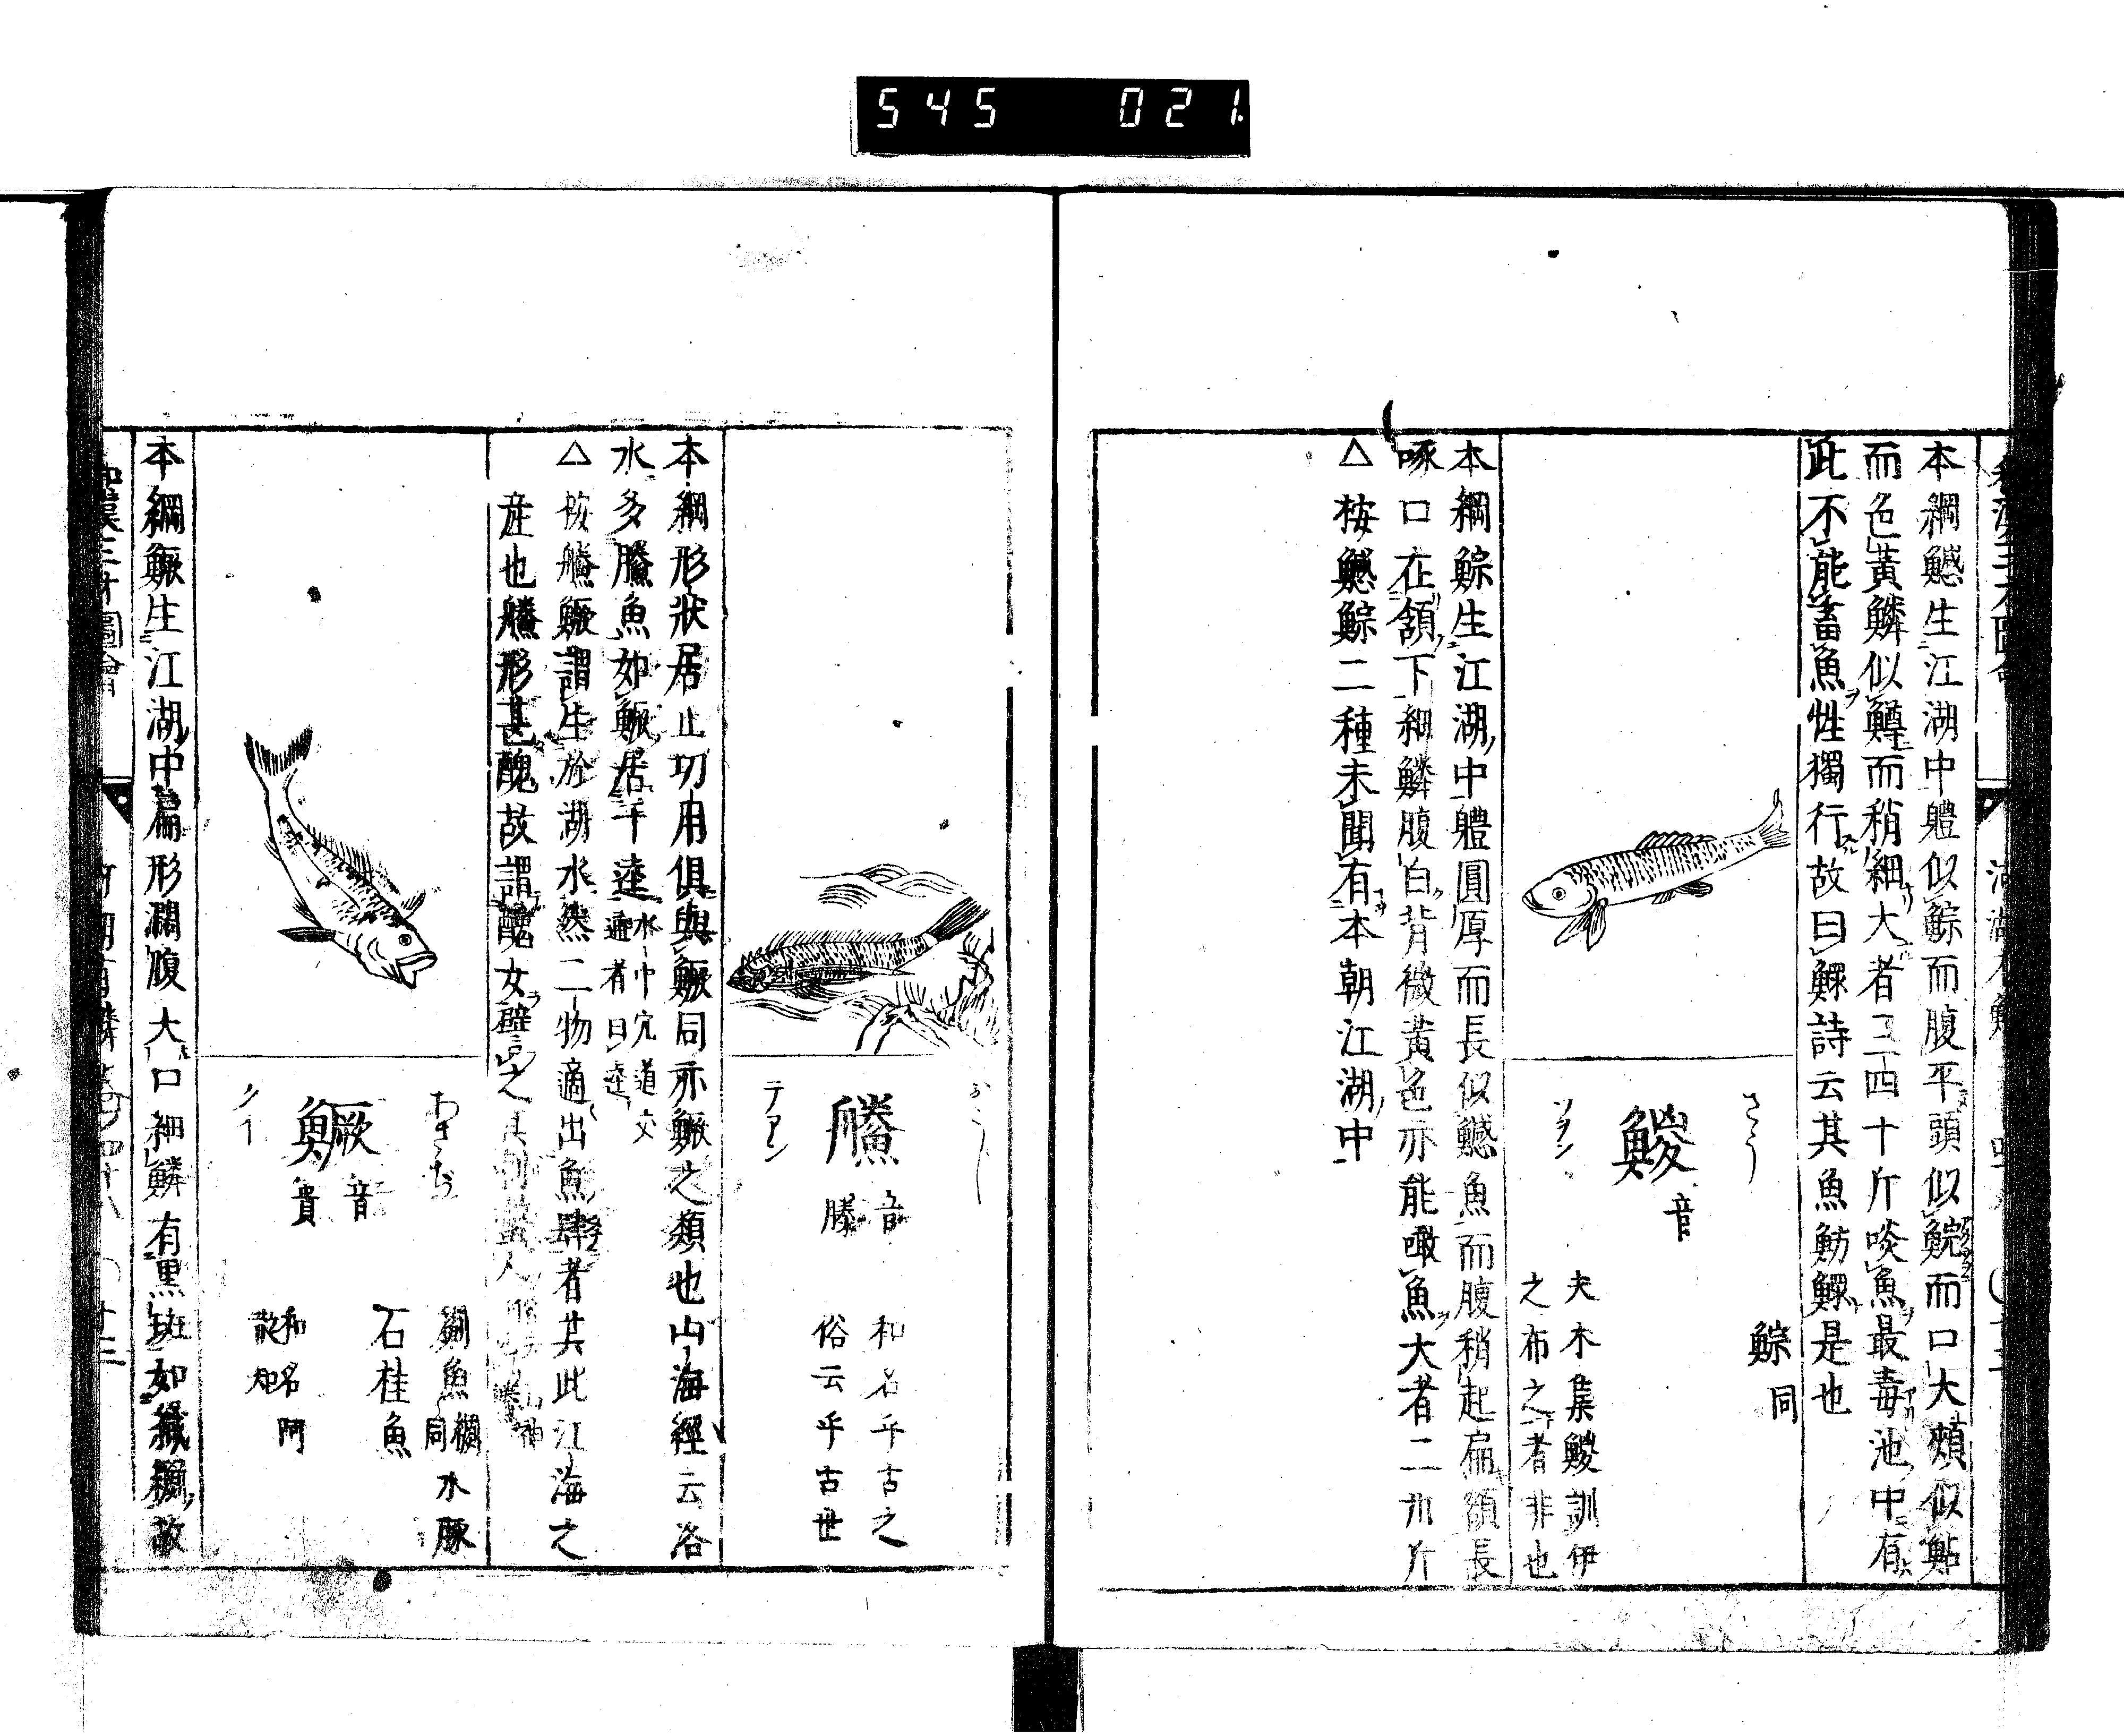 545 021
本綱鱤生江湖中體似鯮而腹平頭似鯇而口大頰似鮎
而色黃鱗似鱒而稍細大者三四十斤啖魚最毒池中有
此不能畜魚性獨行故曰鰥詩云其魚魴鰥是也
さう
鯮同
鯼音
ソヲン
夫木集鯼訓伊
之布之者非也
本綱鯮生江湖中體圓厚而長似鱤魚而腹稍起扁額長
啄口在頷下細鱗腹白背微黃色亦能噉魚大者二卅斤
△按鱤鯮二種未聞有本朝江湖中
音
鰧
滕
テアン
和名乎古之
俗云乎古世
本綱形狀居止功用俱與鱖同亦鱖之類也山海經云洛
水多鰧魚如鱖居于逵水中穴道交
通者曰逵
△按鰧鱖謂生於湖水然二物適出魚肆者其此江海之
產也鰧形甚醜故謂醜女譬之
鱖音
貴
クイ
鱖魚
同
水豚
石桂魚
和名阿
散知
本綱鱖生江湖中扁形濶腹大口細鱗有黑斑如織纈故